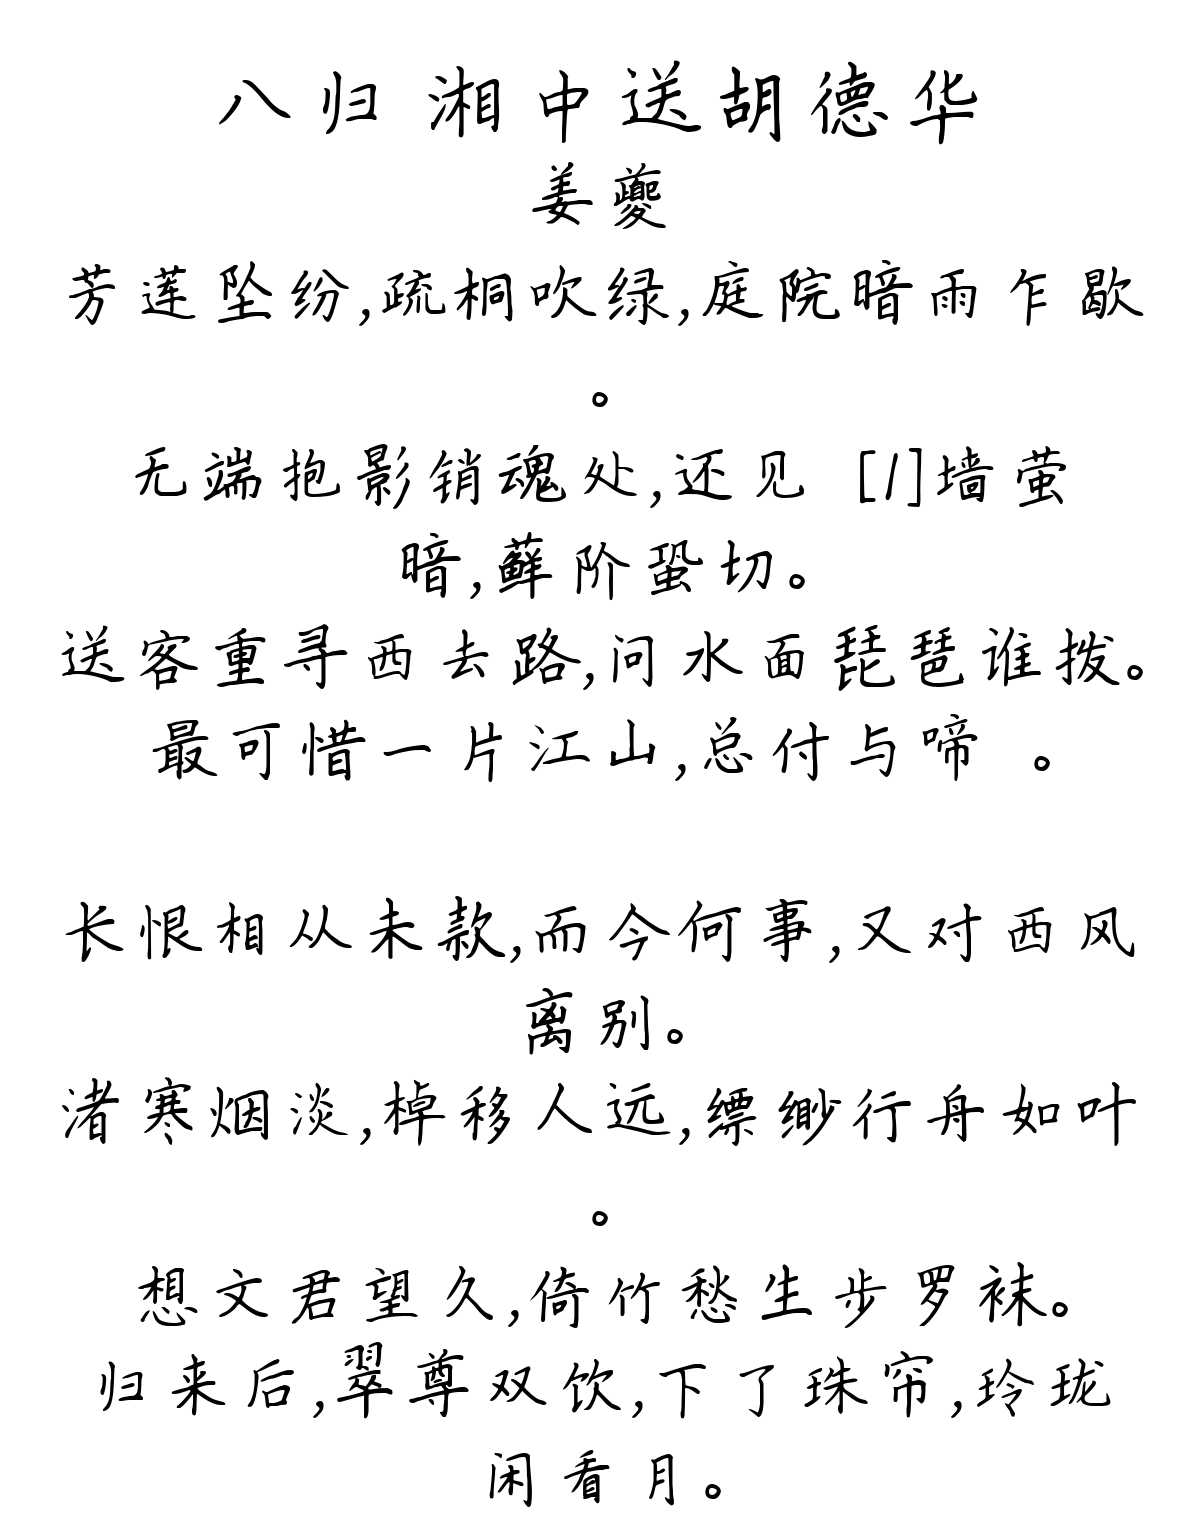 八归 湘中送胡德华
姜夔
芳莲坠纷,疏桐吹绿,庭院暗雨乍歇
。
无端抱影销魂处,还见 [/]墙萤
暗,藓阶蛩切。
送客重寻西去路,问水面琵琶谁拨。
最可惜一片江山,总付与啼 。
长恨相从未款,而今何事,又对西风
离别。
渚寒烟淡,棹移人远,缥缈行舟如叶
。
想文君望久,倚竹愁生步罗袜。
归来后,翠尊双饮,下了珠帘,玲珑
闲看月。